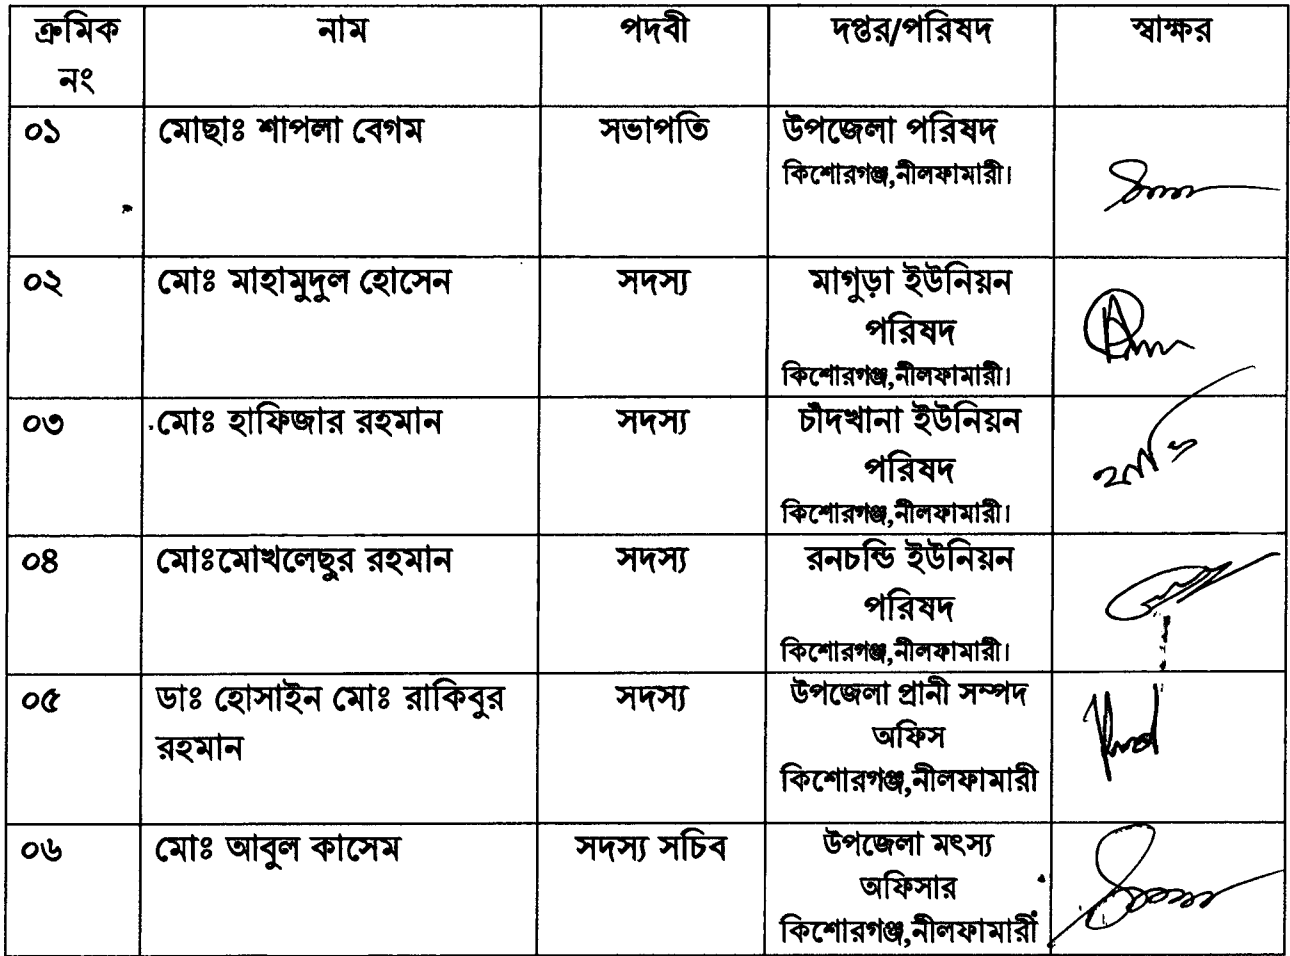 ক্রমিক নাম পদবী দপ্তর/পরিষদ স্বাক্ষর
নং
০১ মোছাঃ শাপলা বেগম সভাপতি উপজেলা পরিষদ
কিশোরগঞ্জ,নীলফামারী।
০২ মোঃ মাহামুদুল হোসেন সদস্য মাগুড়া ইউনিয়ন
পরিষদ
কিশোরগঞ্জ,নীলফামারী।
০৩ মোঃ হাফিজার রহমান সদস্য চাঁদখানা ইউনিয়ন
পরিষদ
কিশোরগঞ্জ,নীলফামারী।
০৪ মোঃমোখলেছুর রহমান সদস্য রনচন্ডি ইউনিয়ন
পরিষদ
কিশোরগঞ্জ,নীলফামারী।
০৫ ডাঃ হোসাইন মোঃ রাকিবুর সদস্য উপজেলা প্রানী সম্পদ
রহমান অফিস
কিশোরগঞ্জ,নীলফামারী
০৬ মোঃ আবুল কাসেম সদস্য সচিব উপজেলা মৎস্য
অফিসার
কিশোরগঞ্জ,নীলফামারী